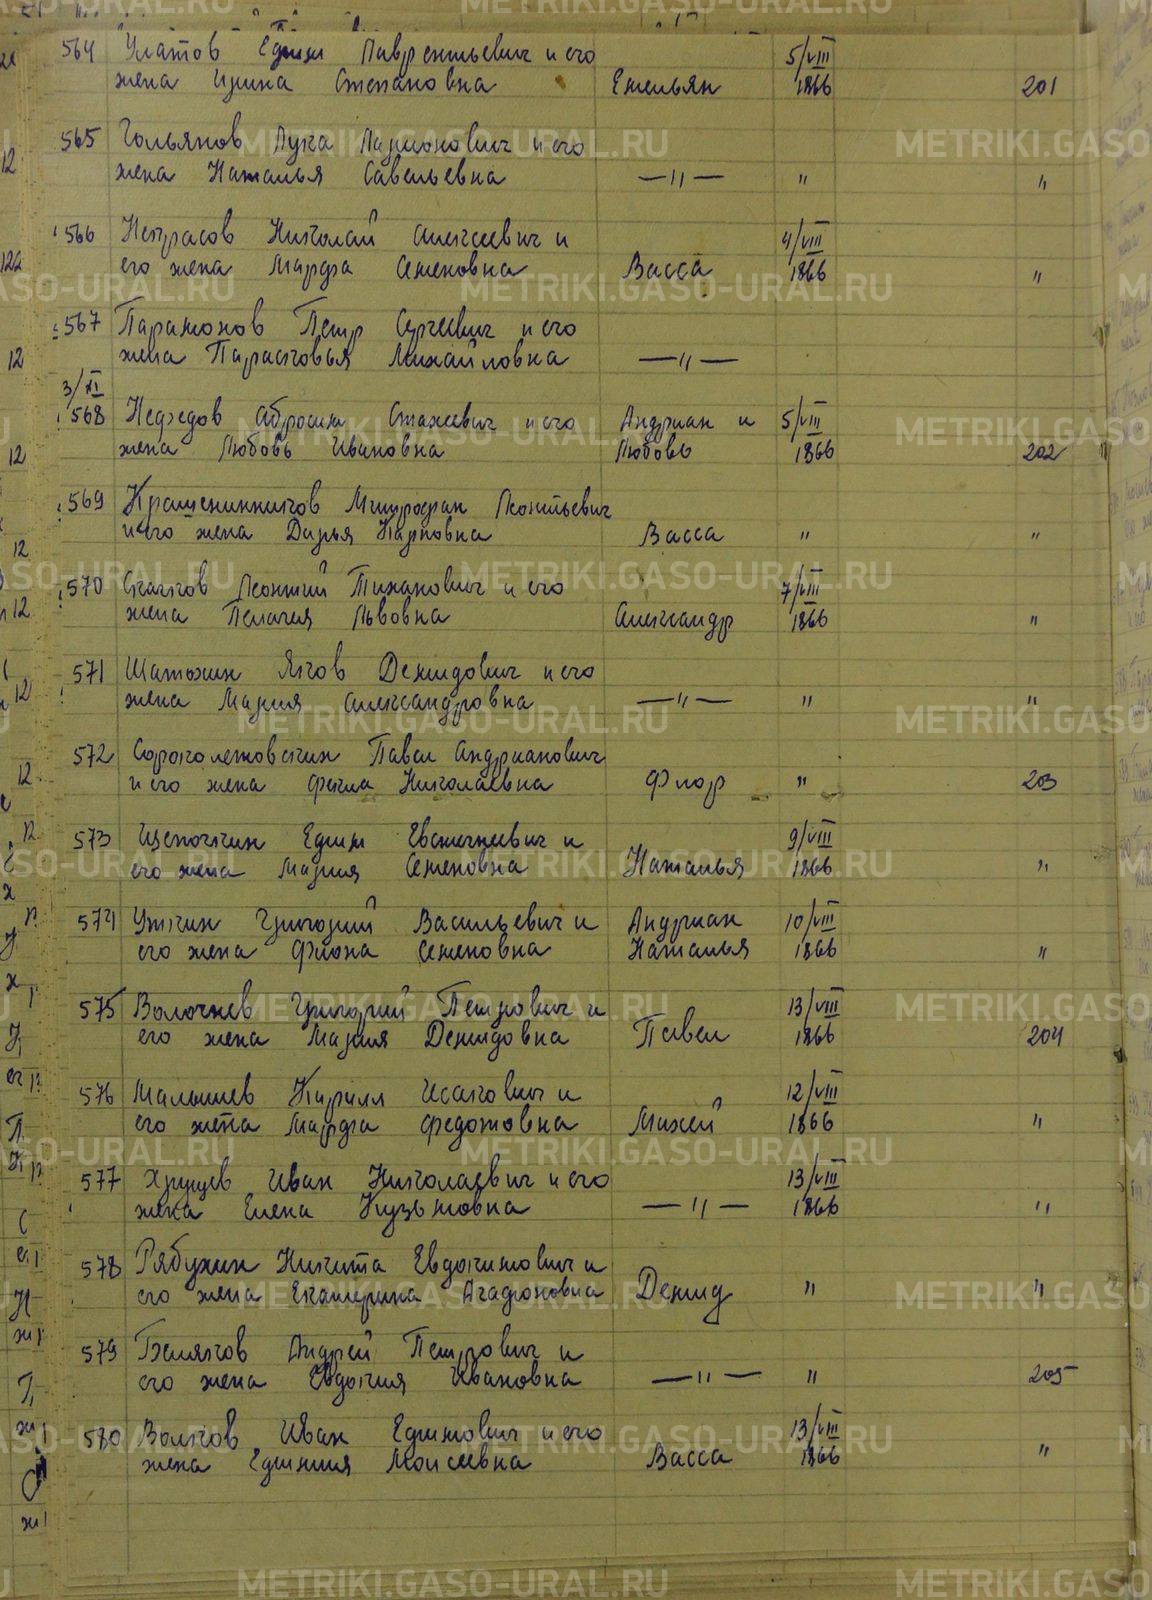 564 Улатов Ефим Лаврентьевич и его 5/VIII
жена Ирина Степановна Емельян 1866 201
565 Гольянов Лука Ларионович и его
жена Наталья Савельевна —"— " "
566 Некрасов Николай Алексеевич и 4/VIII
его жена Марфа Семеновна Васса 1866 "
567 Парамонов Петр Сергеевич и его
жена Парасковья Михайловна —"—
3/XI
568 Нефедов Абросим Стахеевич и его Андриан и 5/VIII
жена Любовь Ивановна Любовь 1866 202
569 Крашенинников Митрофан Леонтьевич
и его жена Дарья Карповна Васса " "
570 Скачков Леонтий Тиханович и его 7/VIII
жена Пелагея Львовна Александр 1866 "
571 Шатохин Яков Демидович и его
жена Мария Александровна —"— " "
572 Сороколетовских Павел Андрианович
и его жена Фекла Николаевна Флор " 203
573 Щепочкин Ефим Евстигнеевич и 9/VIII
его жена Мария Семеновна Наталья 1866 "
574 Уткин Григорий Васильевич и Андриан 10/VIII
его жена Фиона Семеновна Наталья 1866 "
575 Волочнев Григорий Петрович и 13/VIII
его жена Мария Демидовна Павел 1866 204
576 Малышев Кирилл Исакович и 12/VIII
его жена Марфа Федотовна Михей 1866 "
577 Хрущев Иван Николаевич и его 13/VIII
жена Елена Кузьмовна —"— 1866 "
578 Рябухин Никита Евдокимович и
его жена Екатерина Агафоновна Демид " "
579 Беляков Андрей Петрович и
его жена Евдокия Ивановна —"— " 205
580 Волков Иван Ефимович и его 13/VIII
жена Ефимия Моисеевна Васса 1866 "
METRIKI.GASO-URAL.RU